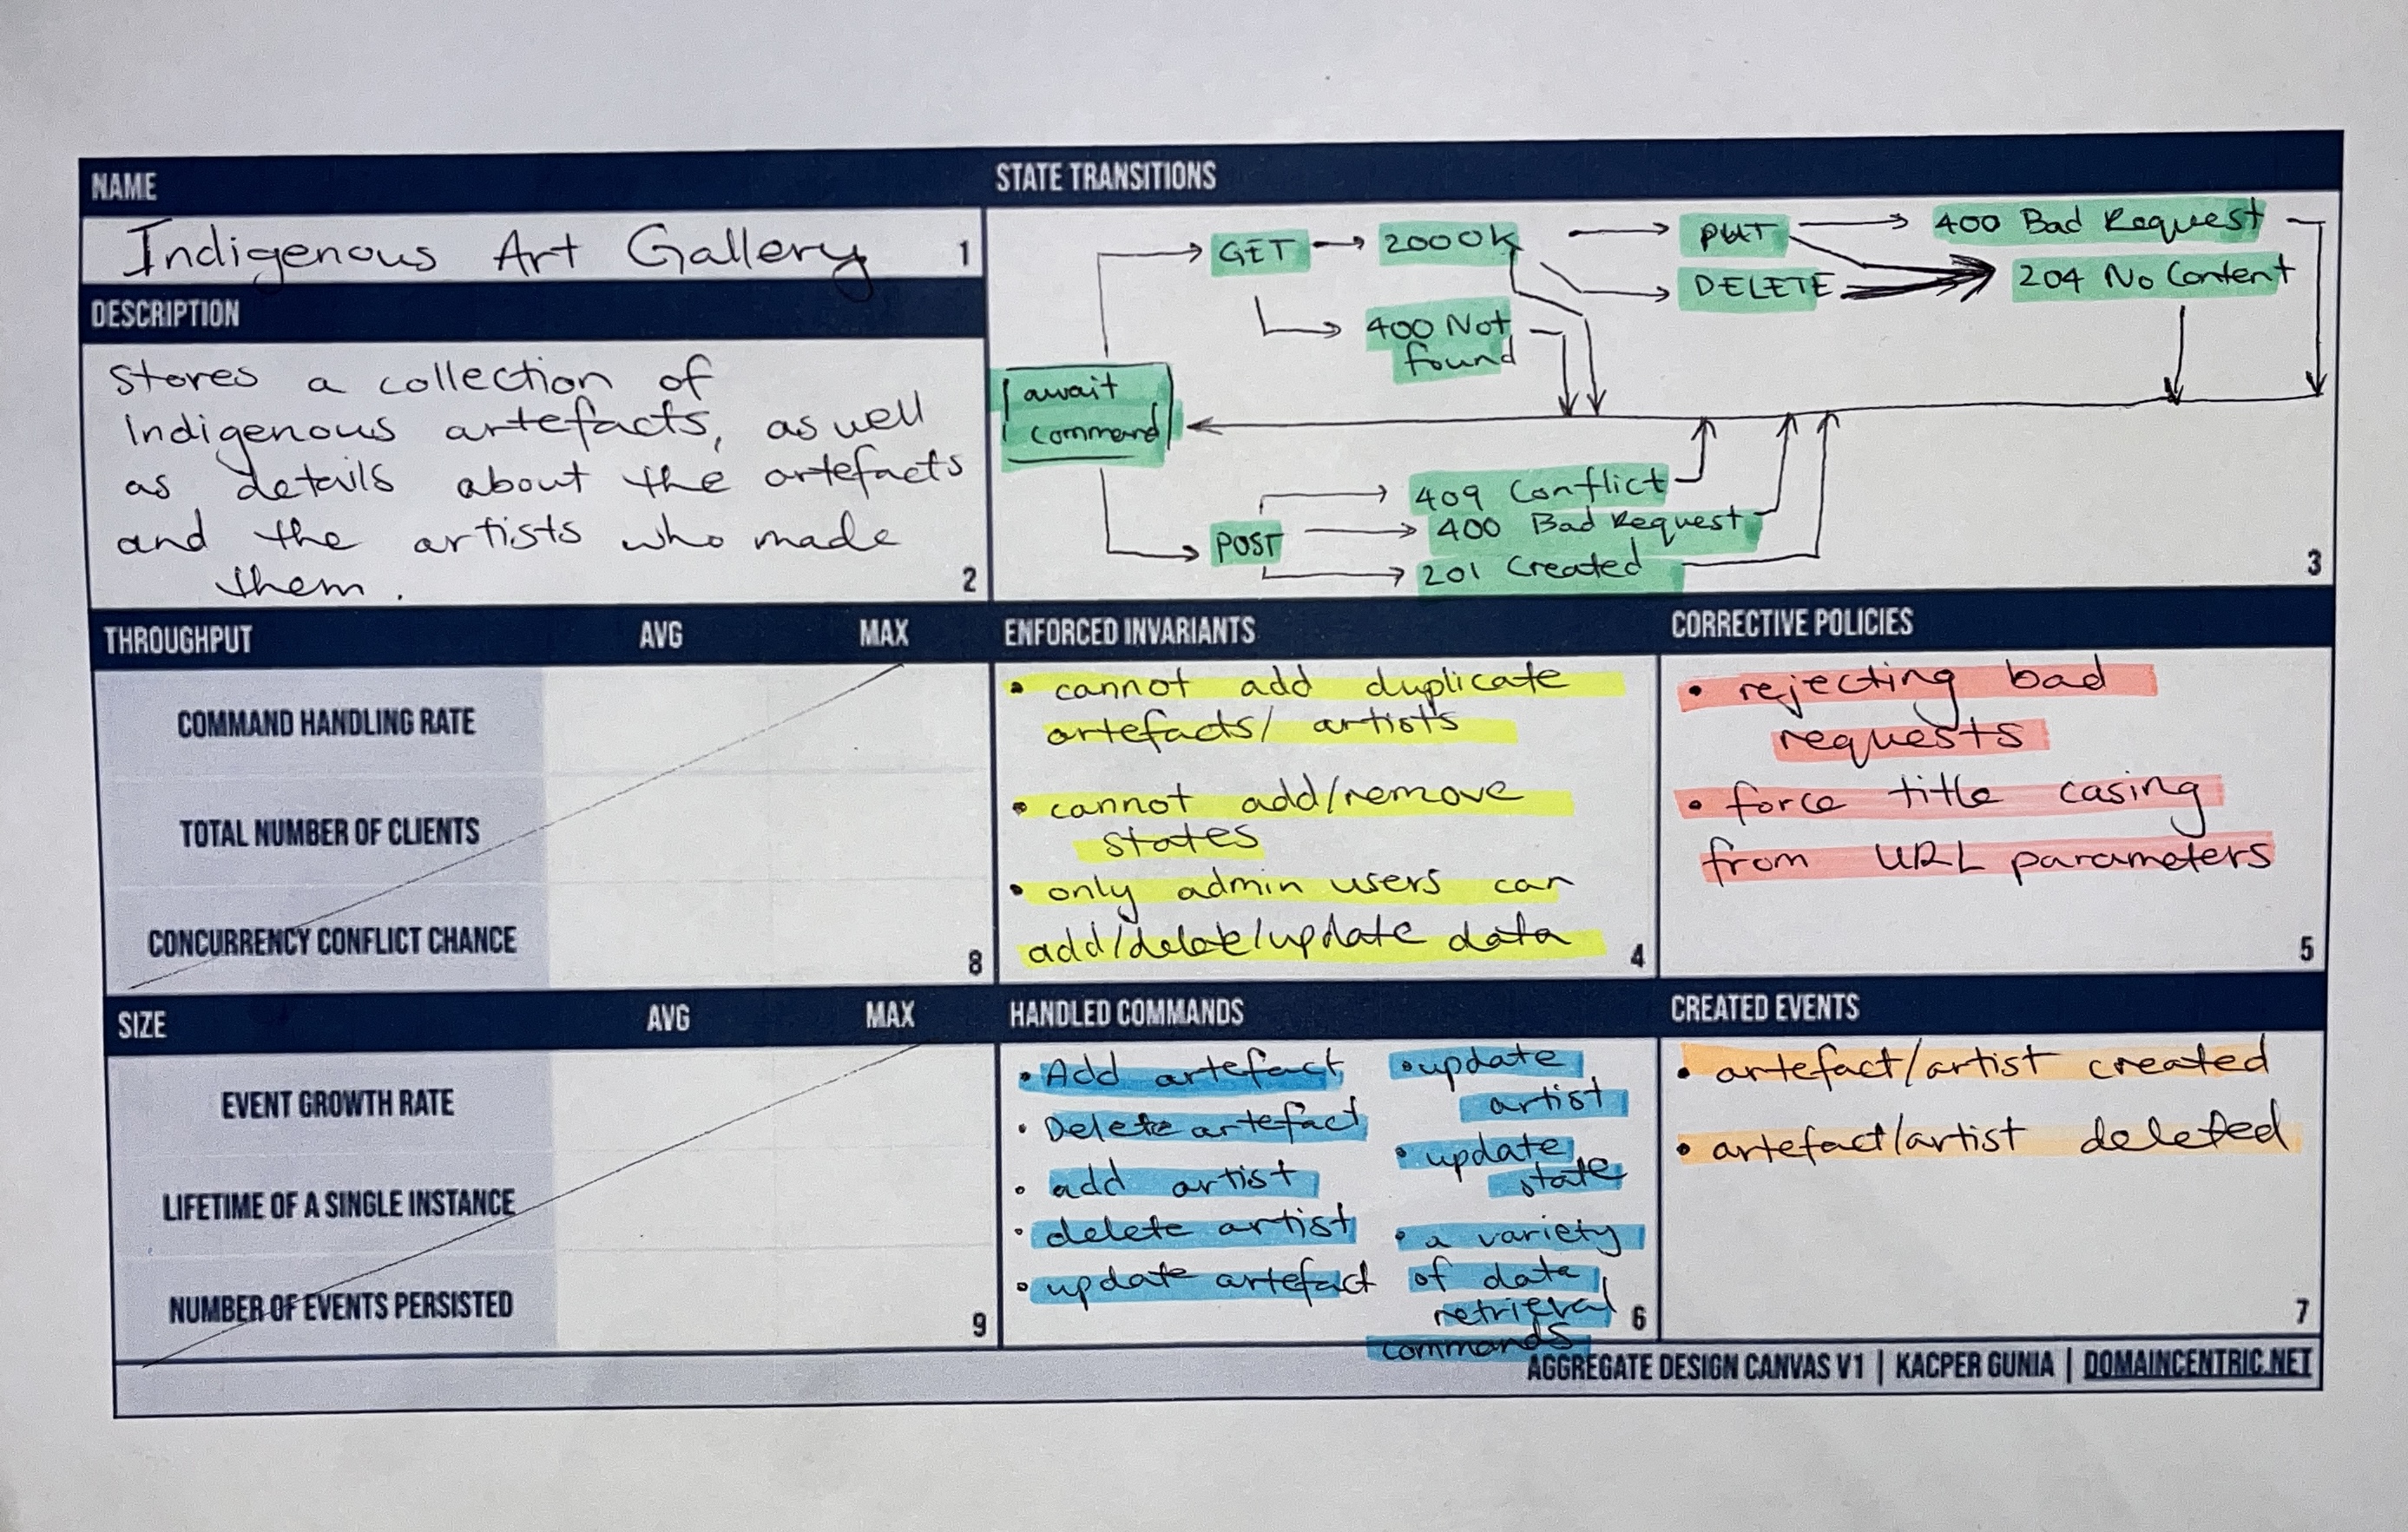 NAME
Indigenous Art Gallery 1
DESCRIPTION
Stores a collection of
Indigenous artefacts, as well
as details about the artefacts
and the artists who made
them. 2
STATE TRANSITIONS
GET 200 OK PUT 400 Bad Request
DELETE 204 No Content
400 Not
found
await
command
409 Conflict
400 Bad Request
POST
201 Created
3
THROUGHPUT AVG MAX
COMMAND HANDLING RATE
TOTAL NUMBER OF CLIENTS
CONCURRENCY CONFLICT CHANCE
8
ENFORCED INVARIANTS
• cannot add duplicate
artefacts/ artists
• cannot add/remove
states
• only admin users can
add/delete/update data
4
CORRECTIVE POLICIES
• rejecting bad
requests
• force title casing
from URL parameters
5
SIZE AVG MAX
EVENT GROWTH RATE
LIFETIME OF A SINGLE INSTANCE
NUMBER OF EVENTS PERSISTED
9
HANDLED COMMANDS
• Add artefact
• Delete artefact
• add artist
• delete artist
• update artefact
• update
artist
• update
state
• a variety
of data
retrieval
commands
6
CREATED EVENTS
• artefact/artist created
• artefact/artist deleted
7
AGGREGATE DESIGN CANVAS V1 | KACPER GUNIA | DOMAINCENTRIC.NET